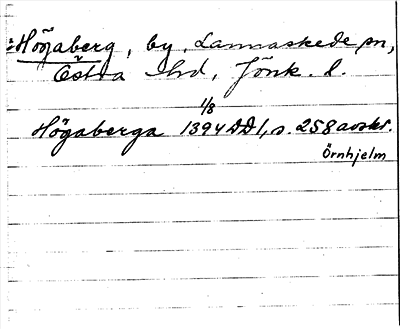 Högaberg, by, Lannaskede sn,
Östra hd, Jönk. l.
1/8
Högaberga 1394 DD 1, s. 258 avskr.
Örnhjelm